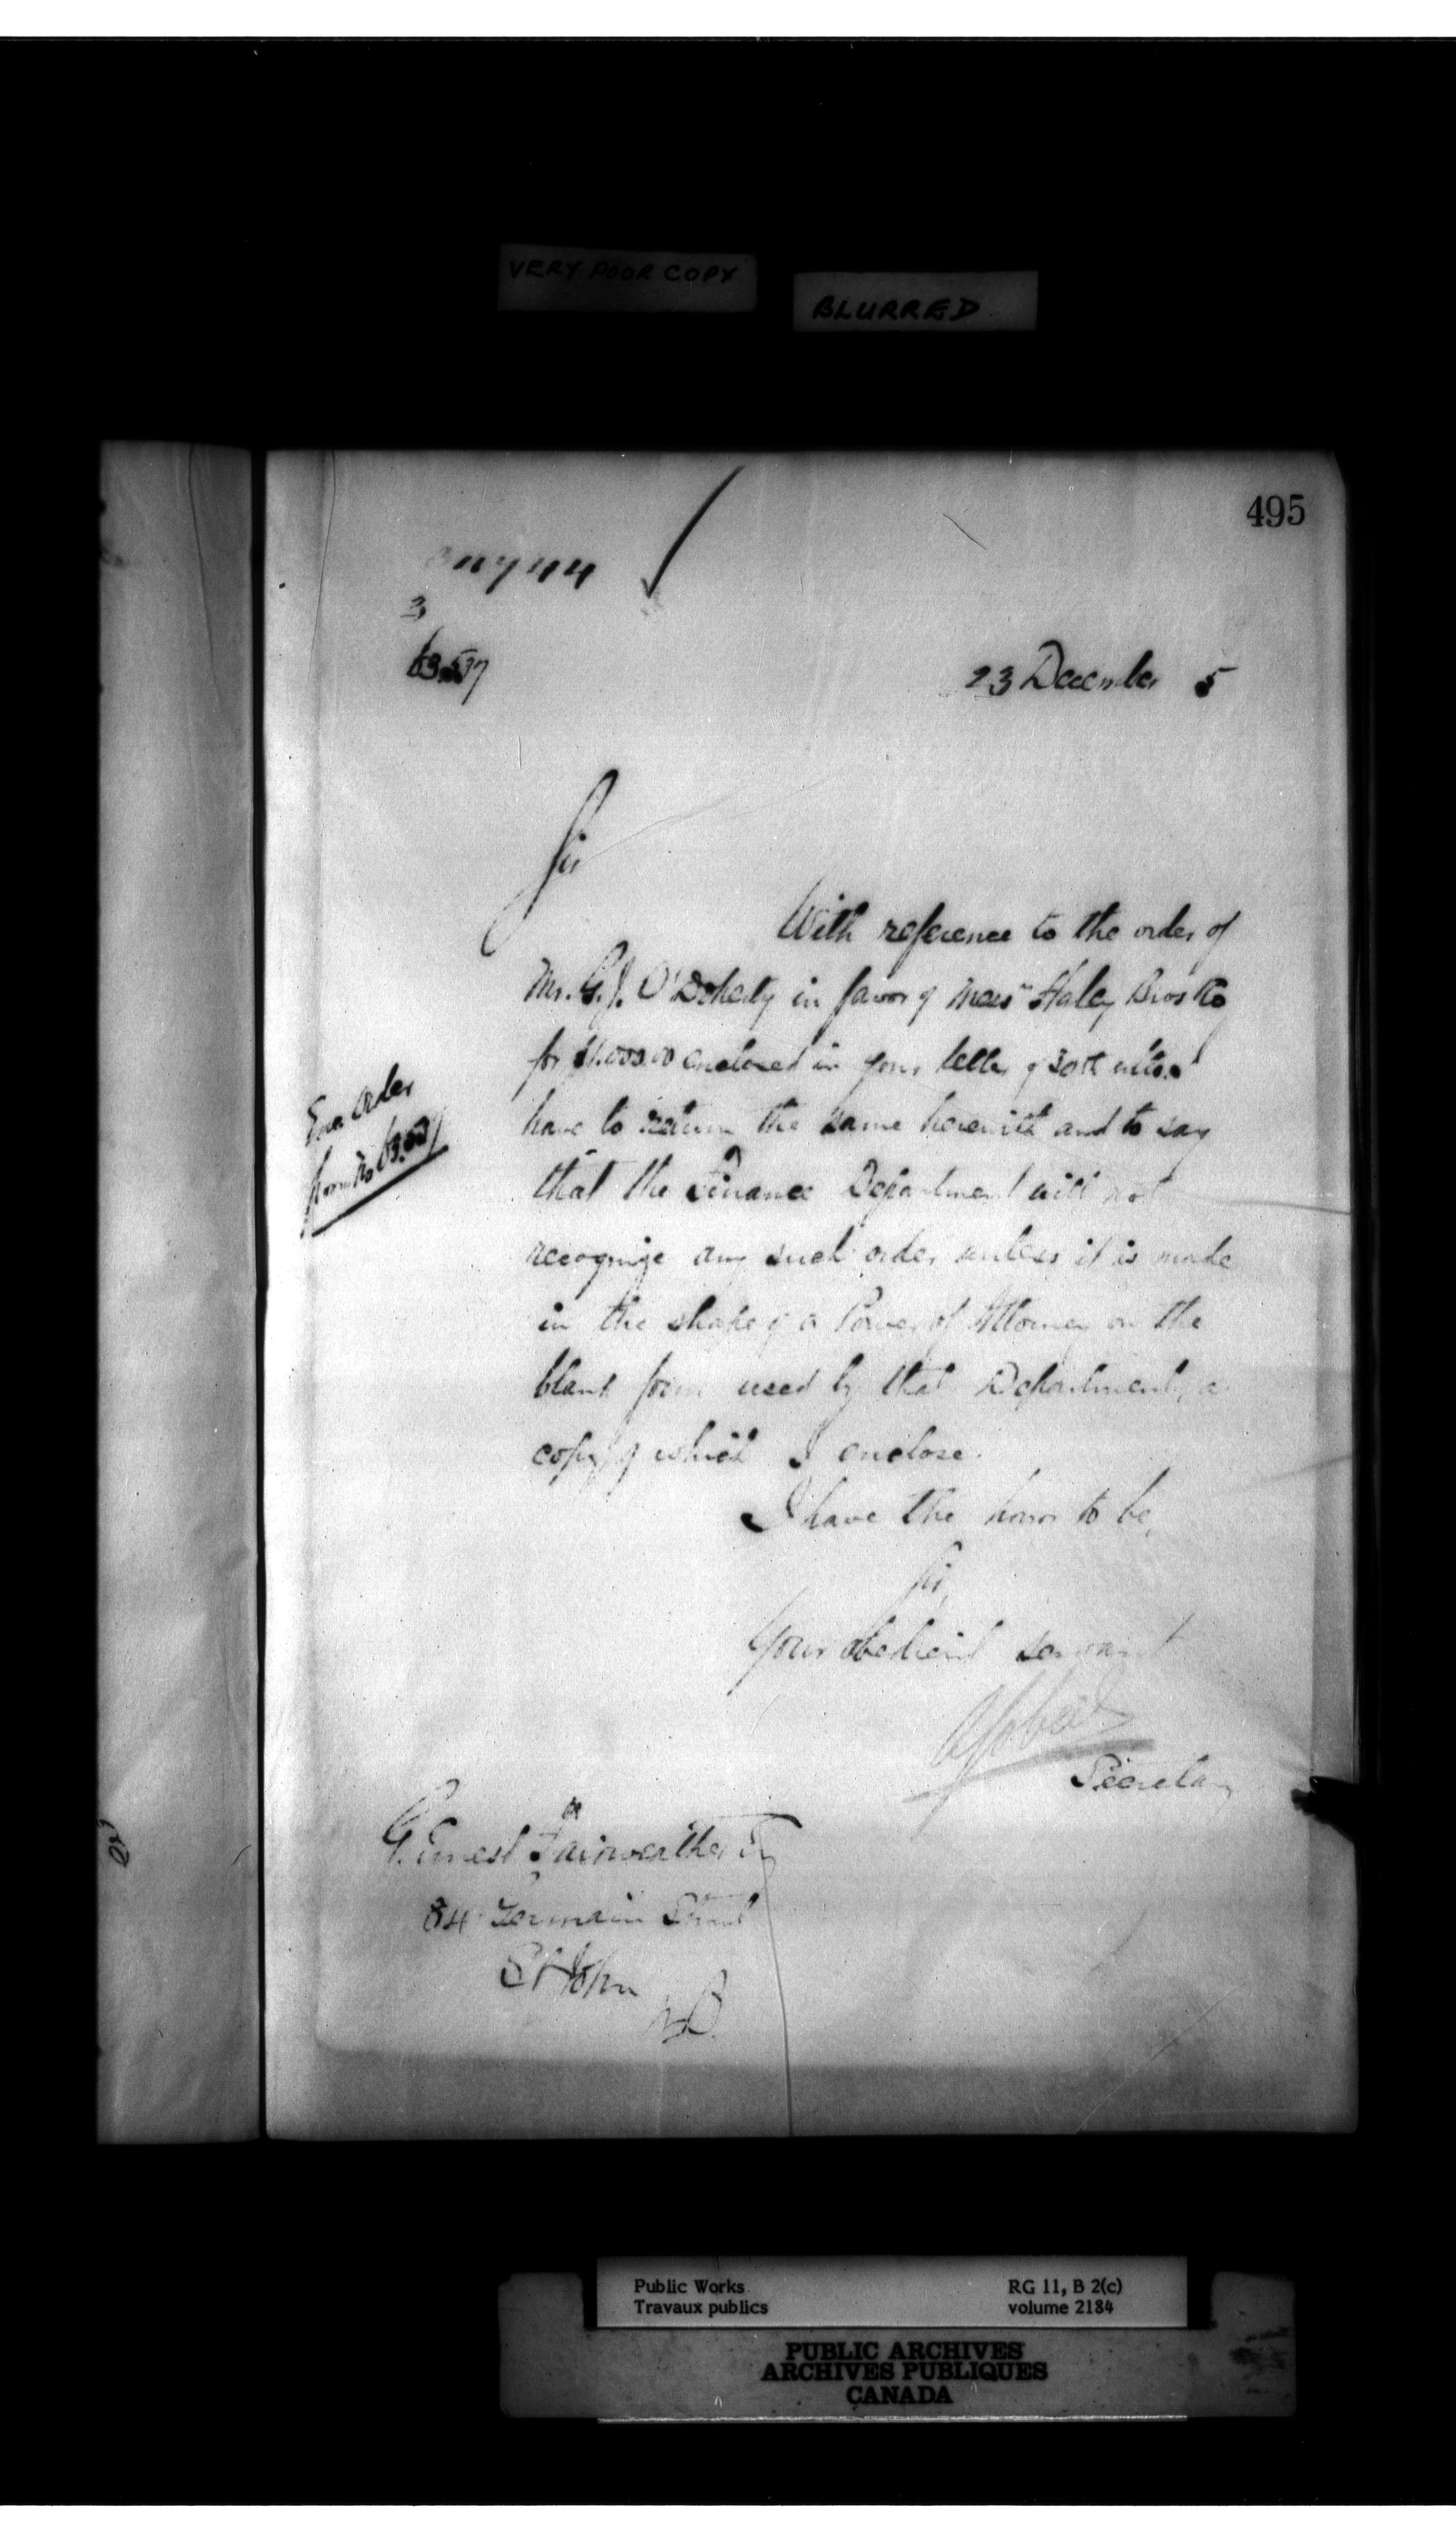 VERY POOR COPY
BLURRED
495
3
23 December 5
Sir
With reference to the order of
Mr. G. J. O'Doherty in favor of Mess<sup>rs</sup> Haley Bros & Co
for $1.000.00 enclosed in your letter of 30th ulto. I
have to return the same herewith and to say
that the Finance Department will not
recognize any such order unless it is made
in the shape of a Power of Attorney on the
blank form used by that Department, a
copy of which I enclose.
I have the honor to be,
Sir,
Your obedient servant
Secretary
order
from No
G. Ernest Fairweather
84 Germain Street
St John
N B.
Public Works
Travaux publics
RG 11, B 2(c)
volume 2184
PUBLIC ARCHIVES
ARCHIVES PUBLIQUES
CANADA